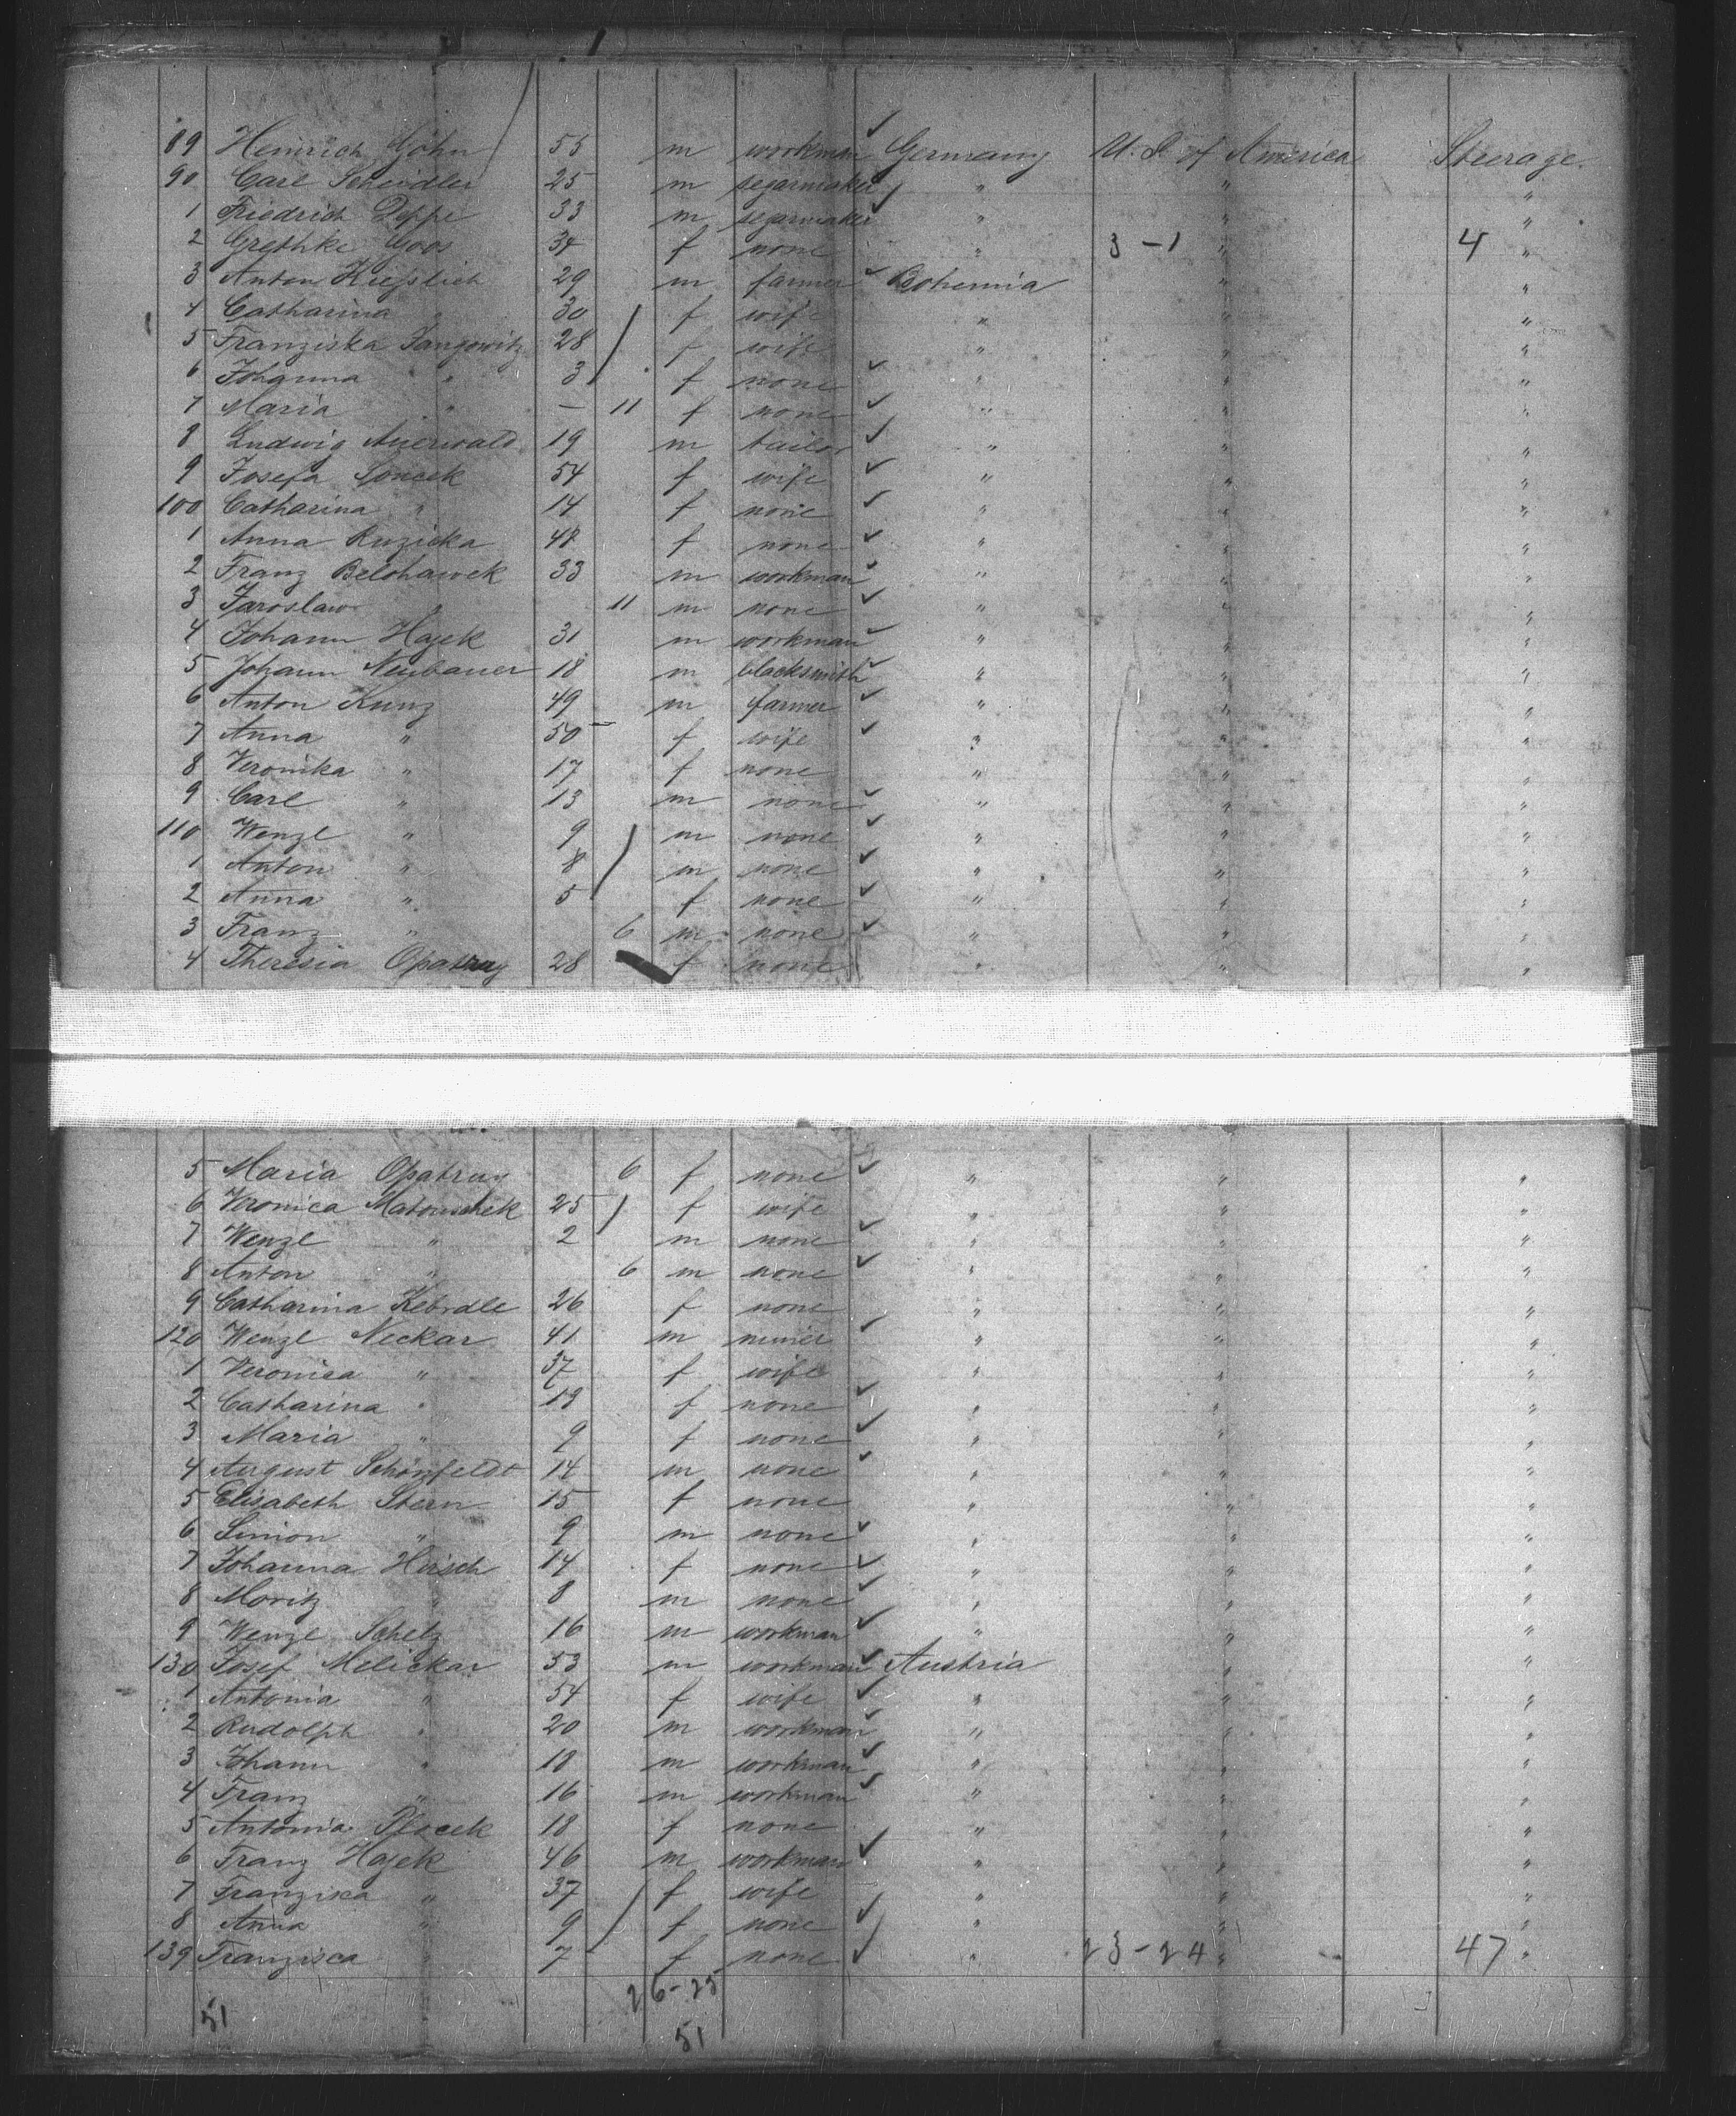 89 Heinrich Göhn 55 m workman Germany U. S. of America Steerage
90 Carl Schindler 25 m segarmaker " " "
1 Friedrich Deppe 33 m segarmaker " " "
2 Grethke Goos 34 f none " 3-1 " 4 "
3 Anton 29 m farmer Bohemia " "
4 Catharina " 30 f wife " " "
5 Franziska 28 f wife " " "
6 Johanna " 3 f none " " "
7 Maria " - 11 f none " " "
8 Ludwig Auerwald 19 m tailor " " "
9 Josefa Soncek 54 f wife " " "
100 Catharina " 14 f none " " "
1 Anna Ruzicka 48 f none " " "
2 Franz Belohawek 33 m workman " " "
3 Jaroslaw " 11 m none " " "
4 Johann Hajek 31 m workman " " "
5 Johann Neubauer 18 m blacksmith " " "
6 Anton Kunz 49 m farmer " " "
7 Anna " 50 f wife " " "
8 Veronika " 17 f none " " "
9 Carl " 13 m none " " "
110 Wenzl " 9 m none " " "
1 Anton " 8 m none " " "
2 Anna " 5 f none " " "
3 Franz " 6 m none " " "
4 Theresia Opatrny 28 f none " " "
5 Maria Opatrny 6 f none " " "
6 Veronica Matouschek 25 f wife " " "
7 Wenzl " 2 m none " " "
8 Anton " 6 m none " " "
9 Catharina Kebrdle 26 f none " " "
120 Wenzl Neckar 41 m miner " " "
1 Veronica " 37 f wife " " "
2 Catharina " 19 f none " " "
3 Maria " 9 f none " " "
4 August Schönfeldt 14 m none " " "
5 Elisabeth Stern 15 f none " " "
6 Simon " 9 m none " " "
7 Johanna Hirsch 14 f none " " "
8 Moritz " 8 m none " " "
9 Wenzl Schelz 16 m workman " " "
130 Josef Melickar 53 m workman Austria " "
1 Antonia " 54 f wife " " "
2 Rudolph " 20 m workman " " "
3 Johann " 18 m workman " " "
4 Franz " 16 m workman " " "
5 Antonia Plocek 18 f none " " "
6 Franz Hajek 46 m workman " " "
7 Franziska " 37 f wife " " "
8 Anna " 9 f none " " "
139 Franzisca " 7 f none " 23-24 " 47 "
26-25
51 51